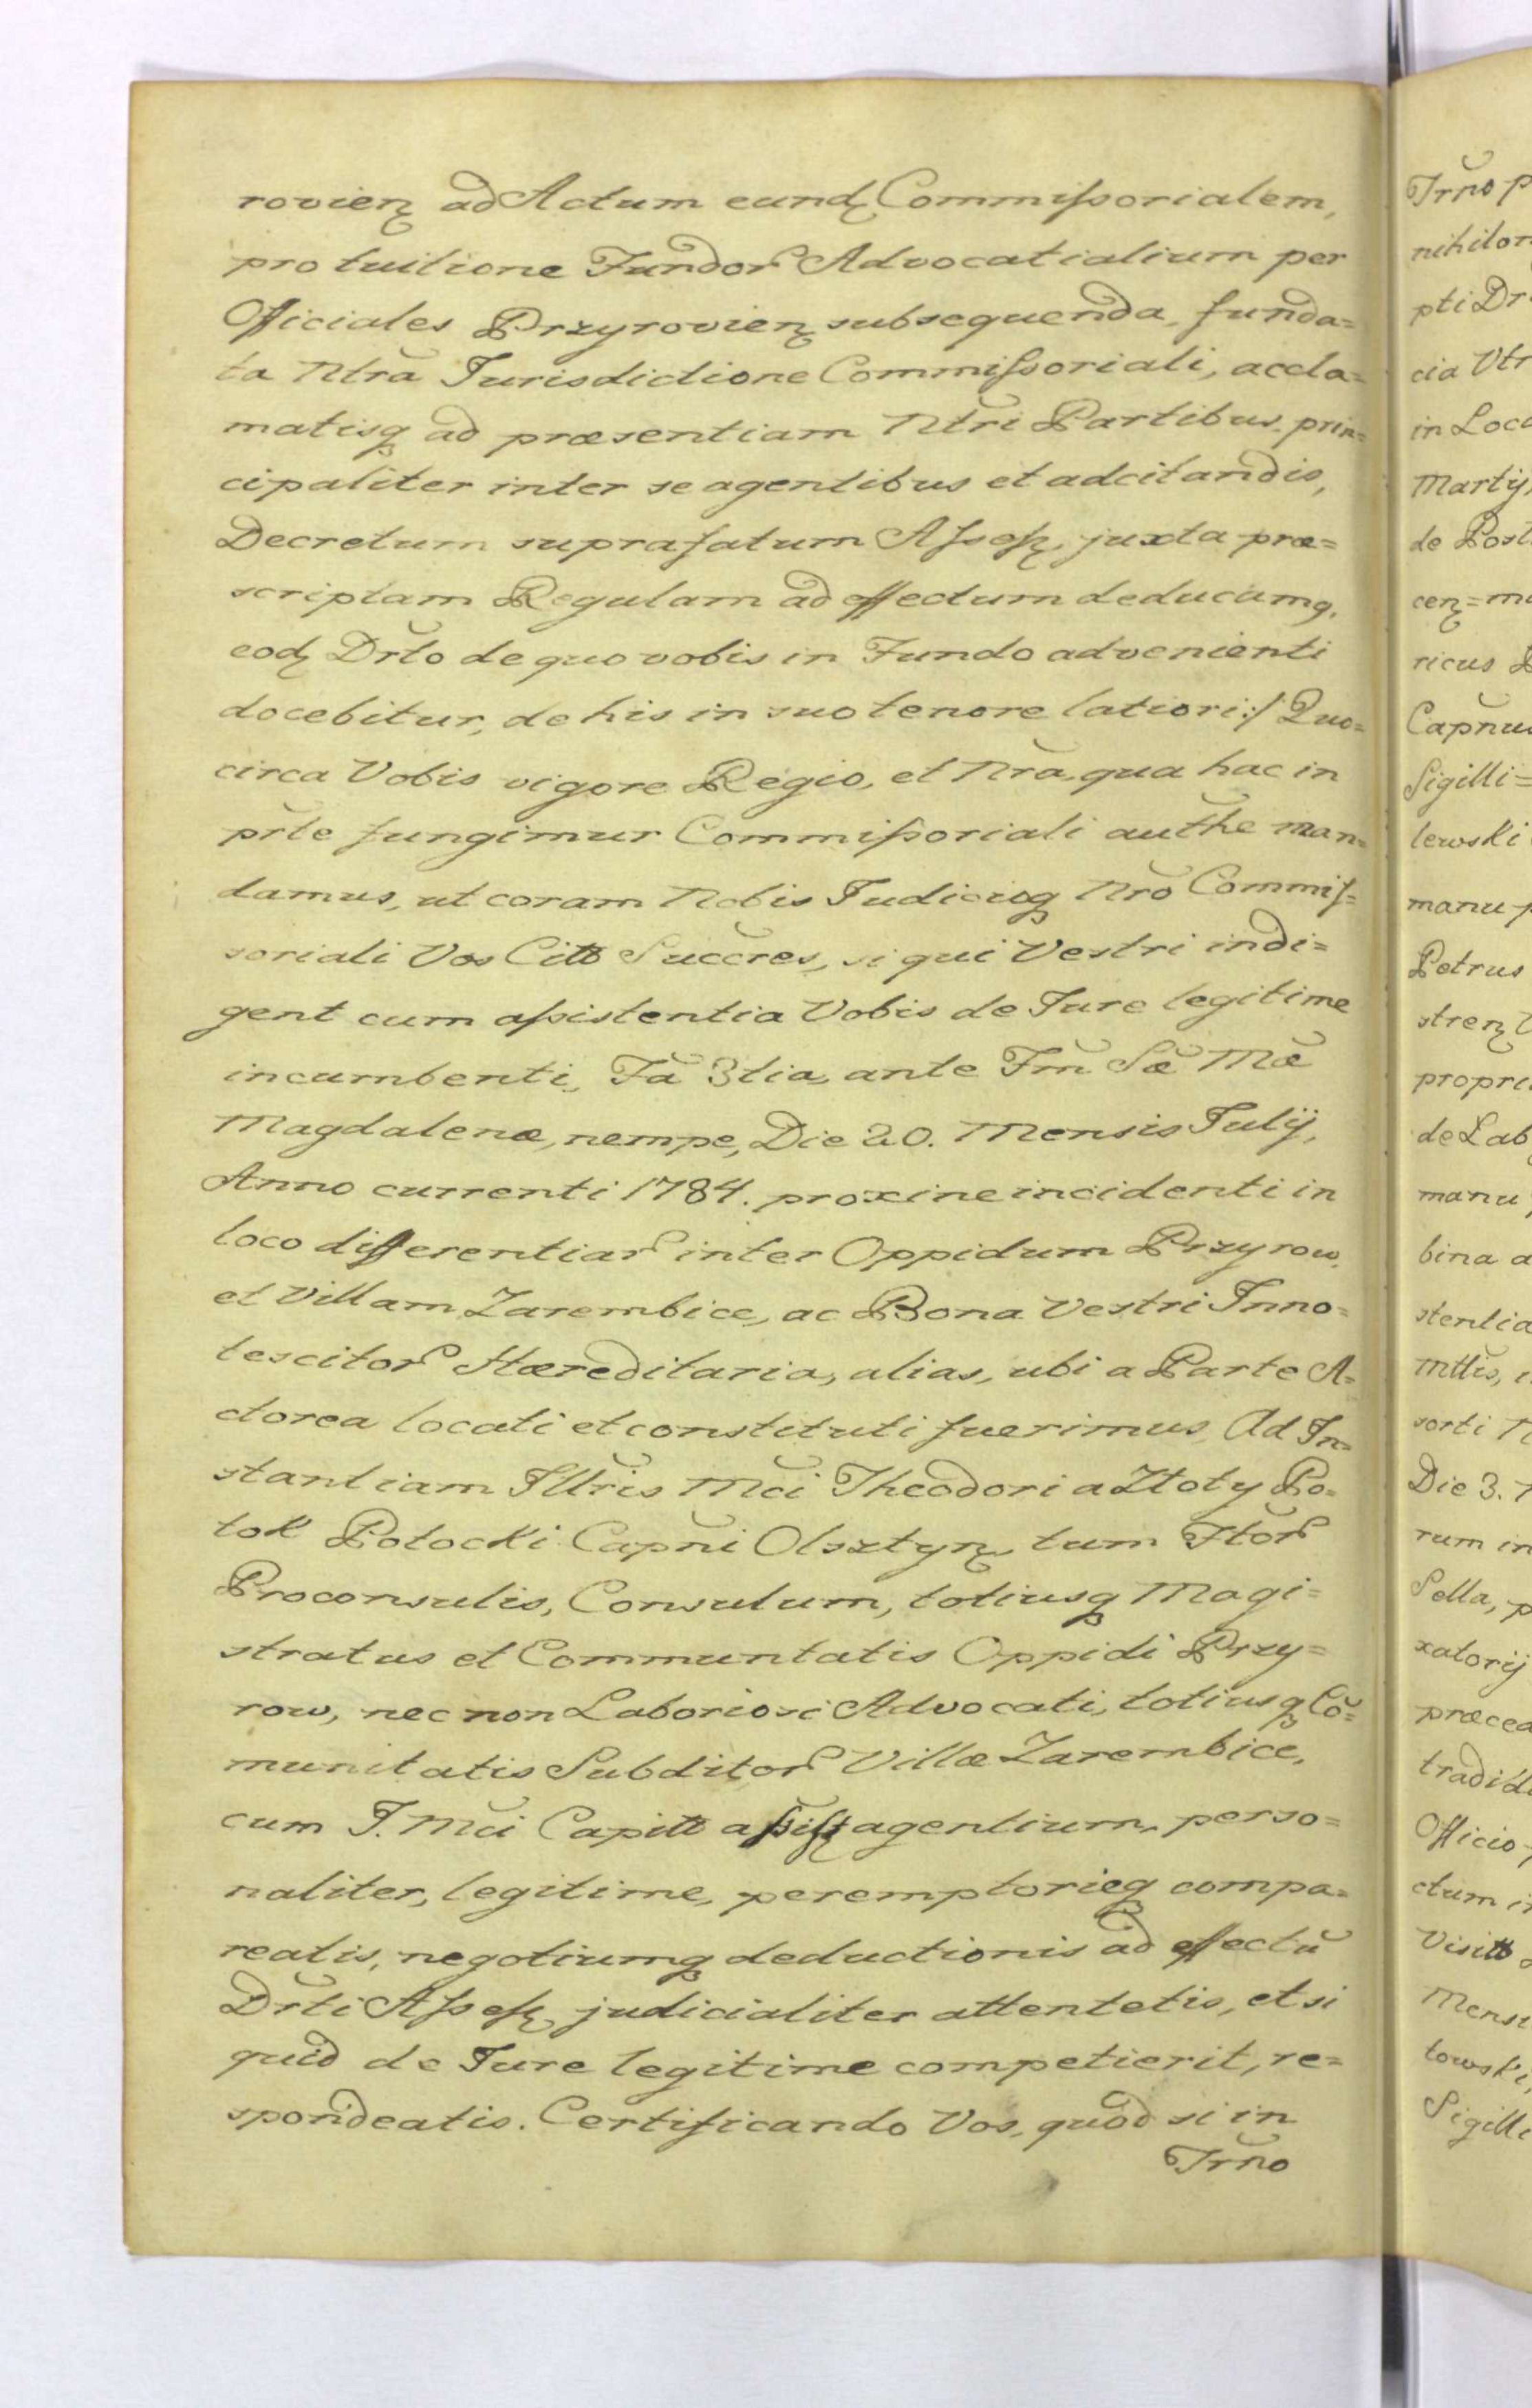 rovienꝫ ad Actum eundꝫ Commissorialem,
pro tuitione Fundor̃ Advocatialium per
Officiales Przyrovienꝫ subsequenda, funda=
ta Ntrã Jurisdictione Commissoriali, accla=
matisq̃ ad præsentiam Ntri Partibus prin=
cipaliter inter se agentibus et adcitandis,
Decretum suprafatum Assessꝫ, juxta præ=
scriptam Regulam ad effectum deducũmq,
eodꝫ Drto de quo vobis in Fundo advenienti
docebitur, de his in suo tenore latiori:/ Quo=
circa Vobis vigore Regio, et Nra, qua hac in
prte fungimur Commissoriali authe man=
damus, ut coram Nobis Judicioq̃ Nro Commis=
soriali Vos Citt Succres, si qui Vestri indi=
gent cum assistentia Vobis de Jure legitime
incumbenti, Fã 3tia, ante Fm̃ Sæ Mæ
Magdalenæ, nempe, Die 20. Mensis Julij,
Anno currenti 1784. proxine incidenti in
loco differentiar̃ inter Oppidum Przyrow,
et Villam Zarembice, ac Bona Vestri Inno=
tescitor̃ Hæreditaria, alias, ubi a Parte A=
ctorea locati et constituti fuerimus, Ad In=
stantiam Illris Mci Theodori a Złoty Po=
tok Potocki Capni Olsztynꝫ, tum Ftor̃
Proconsulis, Consulum, totiusq̃ Magi=
stratus et Communtatis Oppidi Przy=
row, nec non Laboriosi Advocati, totiusq̃ Cõ=
munitatis Subditor̃ Villæ Zarembice,
cum J. Mci Capitt assistꝫ agentium, perso=
naliter, legitime, peremptorieq̃ compa=
reatis, negotiumq̃ deductionis ad effectũ
Drti Assessꝫ judicialiter attentetis, et si
quid de Jure legitime competierit, re=
spondeatis. Certificando Vos, quod si in
Trno

Trno p
nihilon
pti Dr
cia Vtr
in Loc
Martij,
de Post
cenꝫ = m
ricus
Capnu
Sigilli=
lewski
manu p
Petrus
strenꝫ
propri
de Lab
manu
bina a
stentia
Mttis,
sorti N
Die 3.
rum in
Sella, p
xatorij
præcea
tradid
Officio
ctum i
Visitt
Mensi
towski,
Sigilli